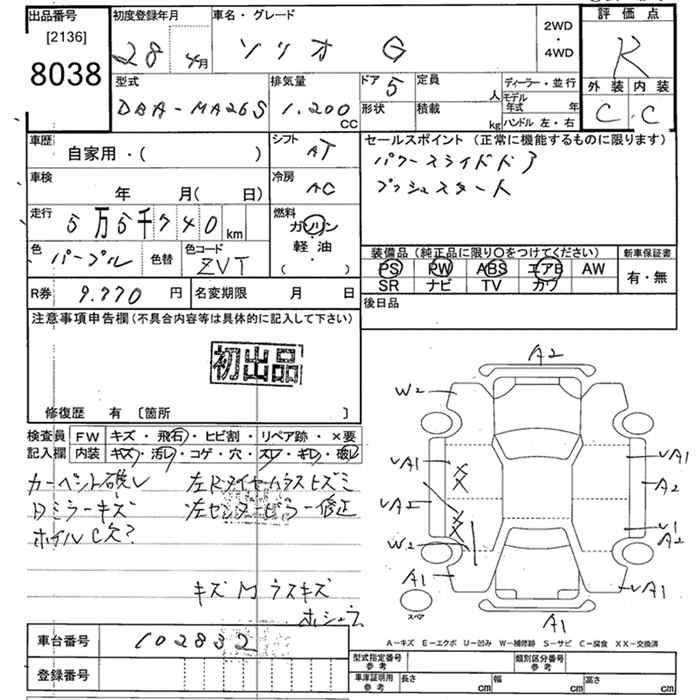 出品番号
[2136]
8038
初度登録年月
28 4月
車名・グレード
ソリオ G
2WD
・
4WD
評価点
R
外装 内装
C C
型式
DBA-MA26S
排気量
1,200
CC
ドア 5
形状
定員 人
積載 kg
ディーラー・並行
モデル年式 年
ハンドル 左・右
車歴
自家用・( )
シフト
AT
セールスポイント (正常に機能するものに限ります)
パワースライドドア
プッシュスタート
車検
年 月(日)
冷房
AC
走行
5万5千740 km
燃料
ガソリン
軽油・
( )
色
パープル
色替
色コード
ZVT
装備品 (純正品に限り〇をつけてください)
PS PW ABS エアB AW
SR ナビ TV カワ
新車保証書
有・無
R券 9.770 円
名変期限 月 日
後日品
注意事項申告欄 (不具合内容等は具体的に記入して下さい)
初出品
修復歴 有 [箇所 ]
検査員
記入欄
FW キズ・飛石・ヒビ割・リペア跡・×要
内装 キズ・汚レ・コゲ・穴・スレ・ギレ・破レ
カーペント破レ
Dミラーキズ
ホイルC欠?
左センターピラー修正
キズ M ラスキズ
A2
W2
VA1
VA1
VA2
A2
V1
A2
W2
A1
VA1
A1
スペア
A-キズ E-エクボ U-凹み W-補修跡 S-サビ C-腐食 XX-交換済
車台番号 102832
登録番号
型式指定番号
参考
類別区分番号
参考
車庫証明用
参考
長さ cm
幅 cm
高さ cm